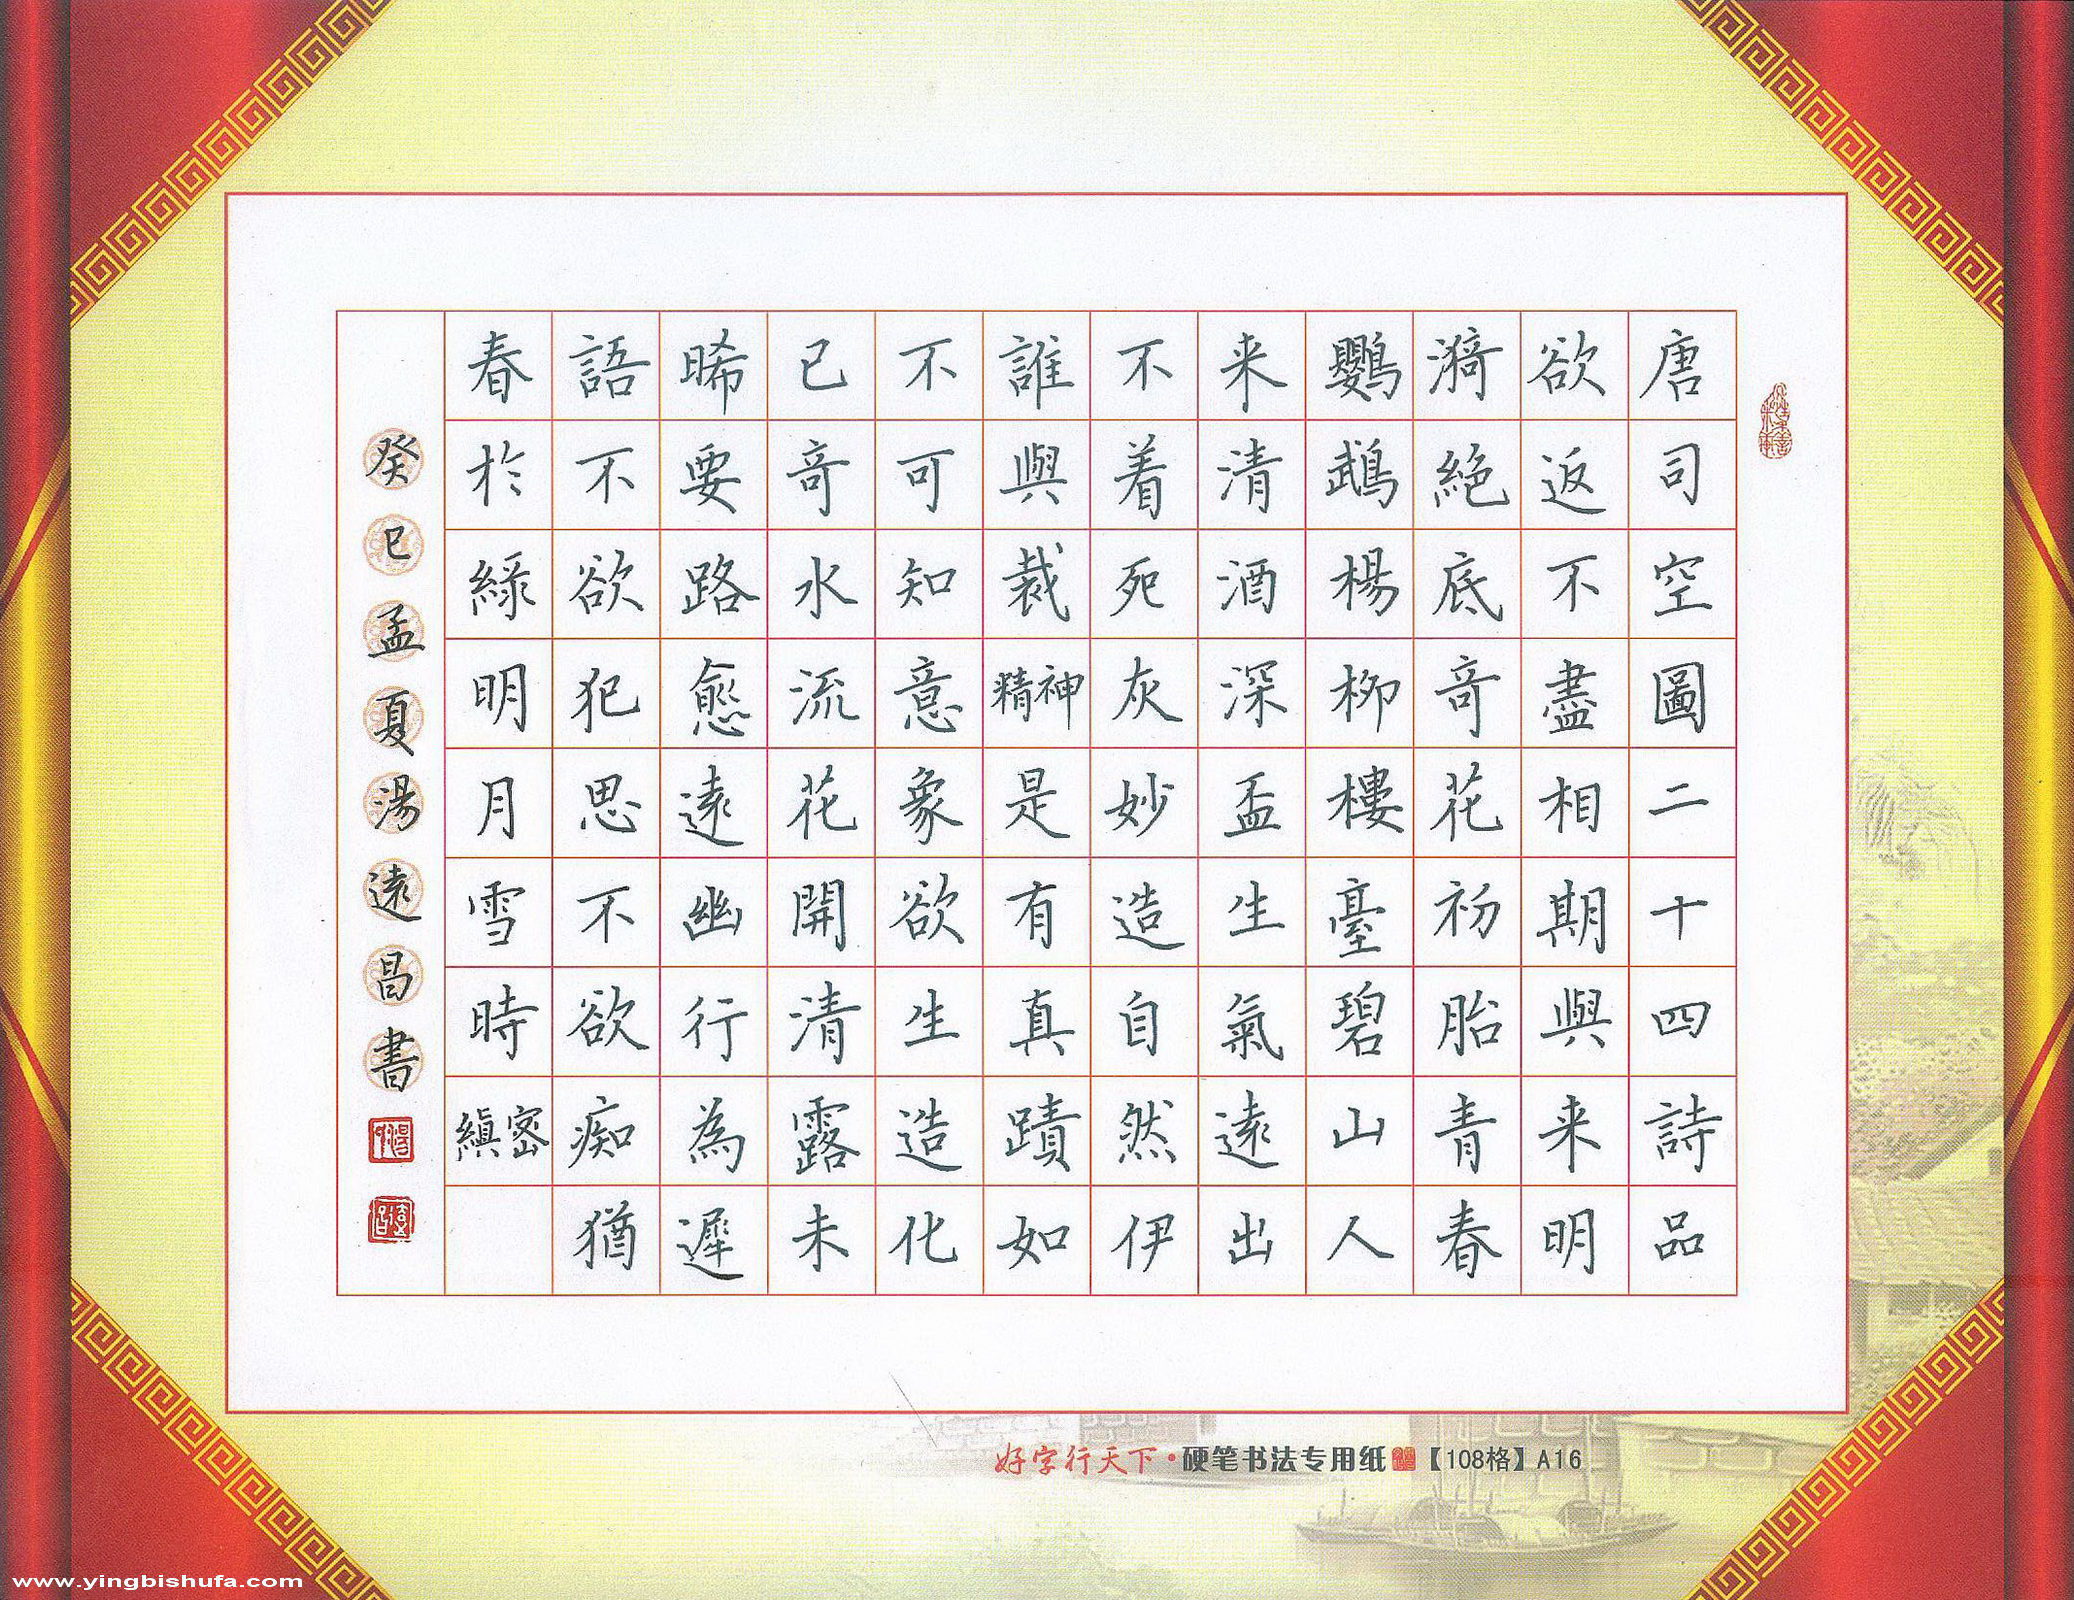 唐司空圖二十四詩品
欲返不盡相期與来明
漪絕底奇花初胎青春
鸚鵡楊柳樓臺碧山人
来清酒深盃生氣遠出
不着死灰妙造自然伊
誰與裁精神是有真蹟如
不可知意象欲生造化
已奇水流花開清露未
晞要路愈遠幽行為遲
語不欲犯思不欲痴猶
春於綠明月雪時縝密
癸巳孟夏湯遠昌書
好字行天下·硬笔书法专用纸【108格】A16
www.yingbishufa.com